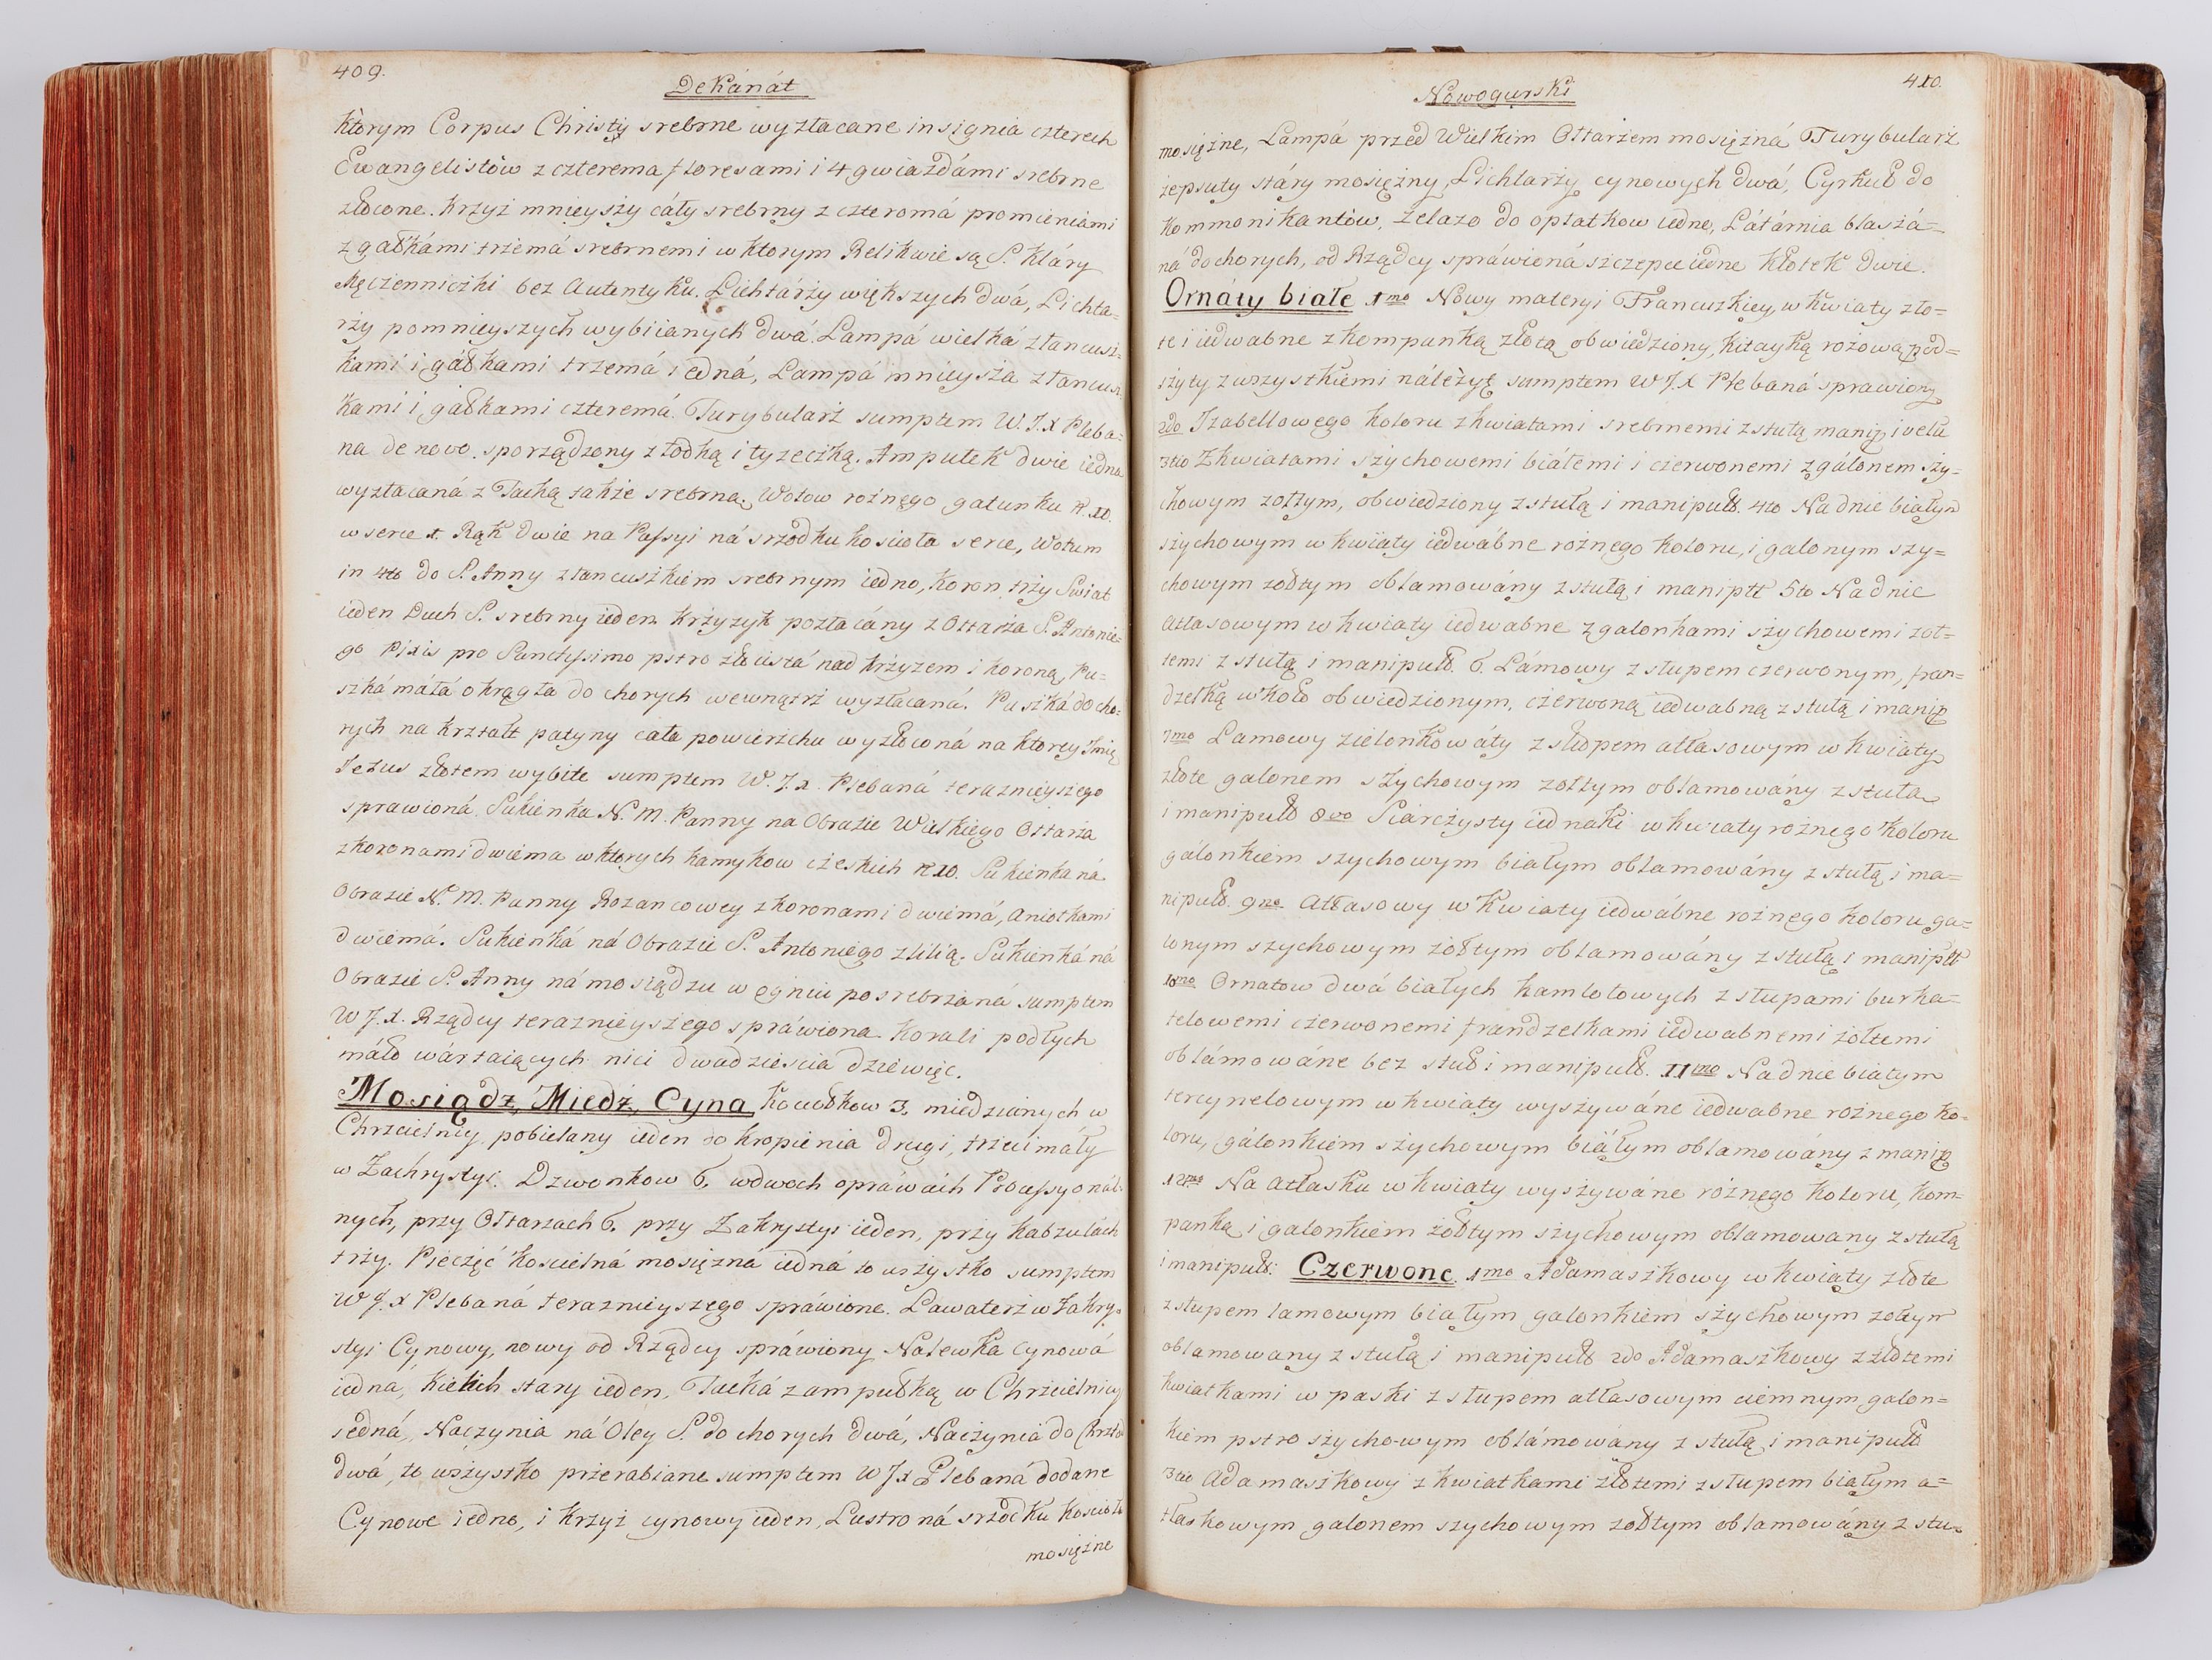 409.
Dekánát
ktorym Corpus Christy srebrne wyzłacane insignia czterech
Ewangelistów z czterema floresami i 4 gwiazdámi srebrne
złocone. Krzyż mnieyszy cáły srebrny z czteromá promieniami
z gałkámi trzemá srebrnemi w ktorym Relikwie są S. Kláry
Męczenniczki bez Autentyku. Lichtárzy większych dwá, Lichta=
rzy pomnieyszych wybiianych dwá. Lampá wielká z łancusz=
kami i gáłkami trzemá iedná, Lampá mnieysza z łancusz
kami i gałkami czteremá. Turybularz sumptem W. J. X Pleba=
na de novo sporządzony z łodką i łyzeczką. Ampułek dwie iedna
wyzłacaná z Tacką także srebrną. Wotow rożnego gatunku N 10.
w serce 1. Rąk dwie na Passyi ná srzodku kosciota serce, Wotum
in 4to do S. Anny z łancuszkiem srebrnym iedno, Koron trzy Swiat
ieden Duch S. srebrny ieden Krzyzyk pozłacány z Ołtarza S. Antonie=
go Pixis pro Sanctissimo pstro złocistá nad krzyzem i koroną, Pu=
szká máłá okrągła do chorych wewnątrz wyzłacaná. Puszká do cho=
rych na krztałt patyny cała powierzchu wyzłoconá na ktorey Imię
Jezus złotem wybite sumptem W. J. X. Plebaná terazniejszego
sprawioná. Sukienka N. M. Panny na Obrazie Wielkiego Ołtarza
z koronami dwiema w ktorych kamykow czeskich N 10. Sukienka ná
Obrazie N. M. Panny Rozancowey z koronami dwiemá, aniołkami
dwiemá. Sukienká ná Obrazie S. Antoniego z lilią. Sukienká ná
Obrazie S. Anny ná mosiądzu w ogniu posrebrzaná sumptem
W J. X. Rządcy teraznieyszego spráwiona. Korali podłych
máło wártaiących nici dwadziescia dziewięc.
Mosiądz, Miedź, Cyna Kociołkow 3. miedzianych w
Chrzcielnicy pobielany ieden do kropienia drugi, trzeci máły
w Zachrystyi. Dzwonkow 6. w dwoch oprawach Processyonál=
nych, przy Ołtarzach 6. przy Zakrystyi ieden, przy Kabzulách
trzy. Pieczęć Koscielná mosięzna iedná to wszystko sumptem
W J. X Plebaná teraznieyszego spráwione. Lawaterz w Zakry=
styi Cynowy, nowy od Rządcy spráwiony Nalewka cynowá
iedná, Kielich stary ieden, Tacká z ampułką w Chrzcielnicy
iedná, Naczynia ná Oley S. do chorych dwá, Naczynia do Chrztu
dwá, to wszystko przerabiane sumptem W J X Plebaná dodane
Cynowe iedno, i Krzyż cynowy ieden, Lustro ná srzodku Koscioła
mosiężne
Nowogurski
410.
mosiężne, Lampá przed Wielkim Ołtarzem mosiężná Turybularz
zepsuty stáry mosięzny, Lichtarzy cynowych dwá, Cyrkuł do
kommonikantów, żelazo do opłatkow iedno, Látárnia blaszá=
ná do chorych, od Rządcy spráwioná szczepce iedne Kłotek dwie.
Ornáty białe 1mo Nowy materyi Francuzkiey, w kwiaty zło=
te i iedwabne z kompanką złotą obwiedziony, kitayką rożową pod=
szyty z wszystkiemi náleżyt. sumptem W J. X Plebaná sprawiony
2do Izabellowego koloru z kwiatami srebrnemi z stułą manip i velu
3tio Z kwiatami szychowemi białemi i czerwonemi z gálonem szy=
chowym zołtym, obwiedziony z stułą i manipuł. 4to Na dnie białym
szychowym w kwiaty iedwábne rożnego koloru, i galonym szy=
chowym zołtym oblamowány z stułą i manipłł 5to Na dnie
Atłasowym w kwiaty iedwabne z galonkami szychowemi zoł=
temi z stułą i manipuł. 6. Lámowy z słupem czerwonym, fran=
dzelką wkoło obwiedzionym, czerwoną iedwabną z stułą i manip
7mo Lamowy zielonkowáty z słupem atłasowym w kwiaty
złote galonem szychowym zołtym oblamowány z stuła
i manipuł 8vo Siarczysty iednaki w kwiaty rożnego koloru
gálonkiem szychowym białym oblamowány z stułą i ma=
nipuł. 9no. Atłasowy w kwiaty iedwábne rożnego koloru ga=
lonym szychowym żołtym oblamowány z stułą i manipłł
10mo Ornatow dwá białych kamlotowych z słupami burka=
telowemi czerwonemi frandzelkami iedwabnemi żołtemi
oblámowáne bez stuł i manipuł. 11mo Na dnie białym
tercynelowym w kwiaty wyszywáne iedwabne rożnego ko=
loru, gálonkiem szychowym białym oblamowány z manip
12mo Na Atłasku w kwiaty wyszywáne rożnego koloru, kom=
panką i galonkiem żołtym szychowym oblamowany z stułą
i manipuł. Czerwone. 1mo Adamaszkowy w kwiaty złote
z słupem lamowym białym galonkiem szychowym zołtym
oblamowany z stułą i manipuł 2do Adamaszkowy z złotemi
kwiatkami w paski z słupem atłasowym ciemnym galon=
kiem pstro szychowym oblámowány z stułą i manipuł
3tio Adamaszkowy z kwiatkami złotemi z słupem białym a=
tłaskowym galonem szychowym zołtym oblamowány z stu=